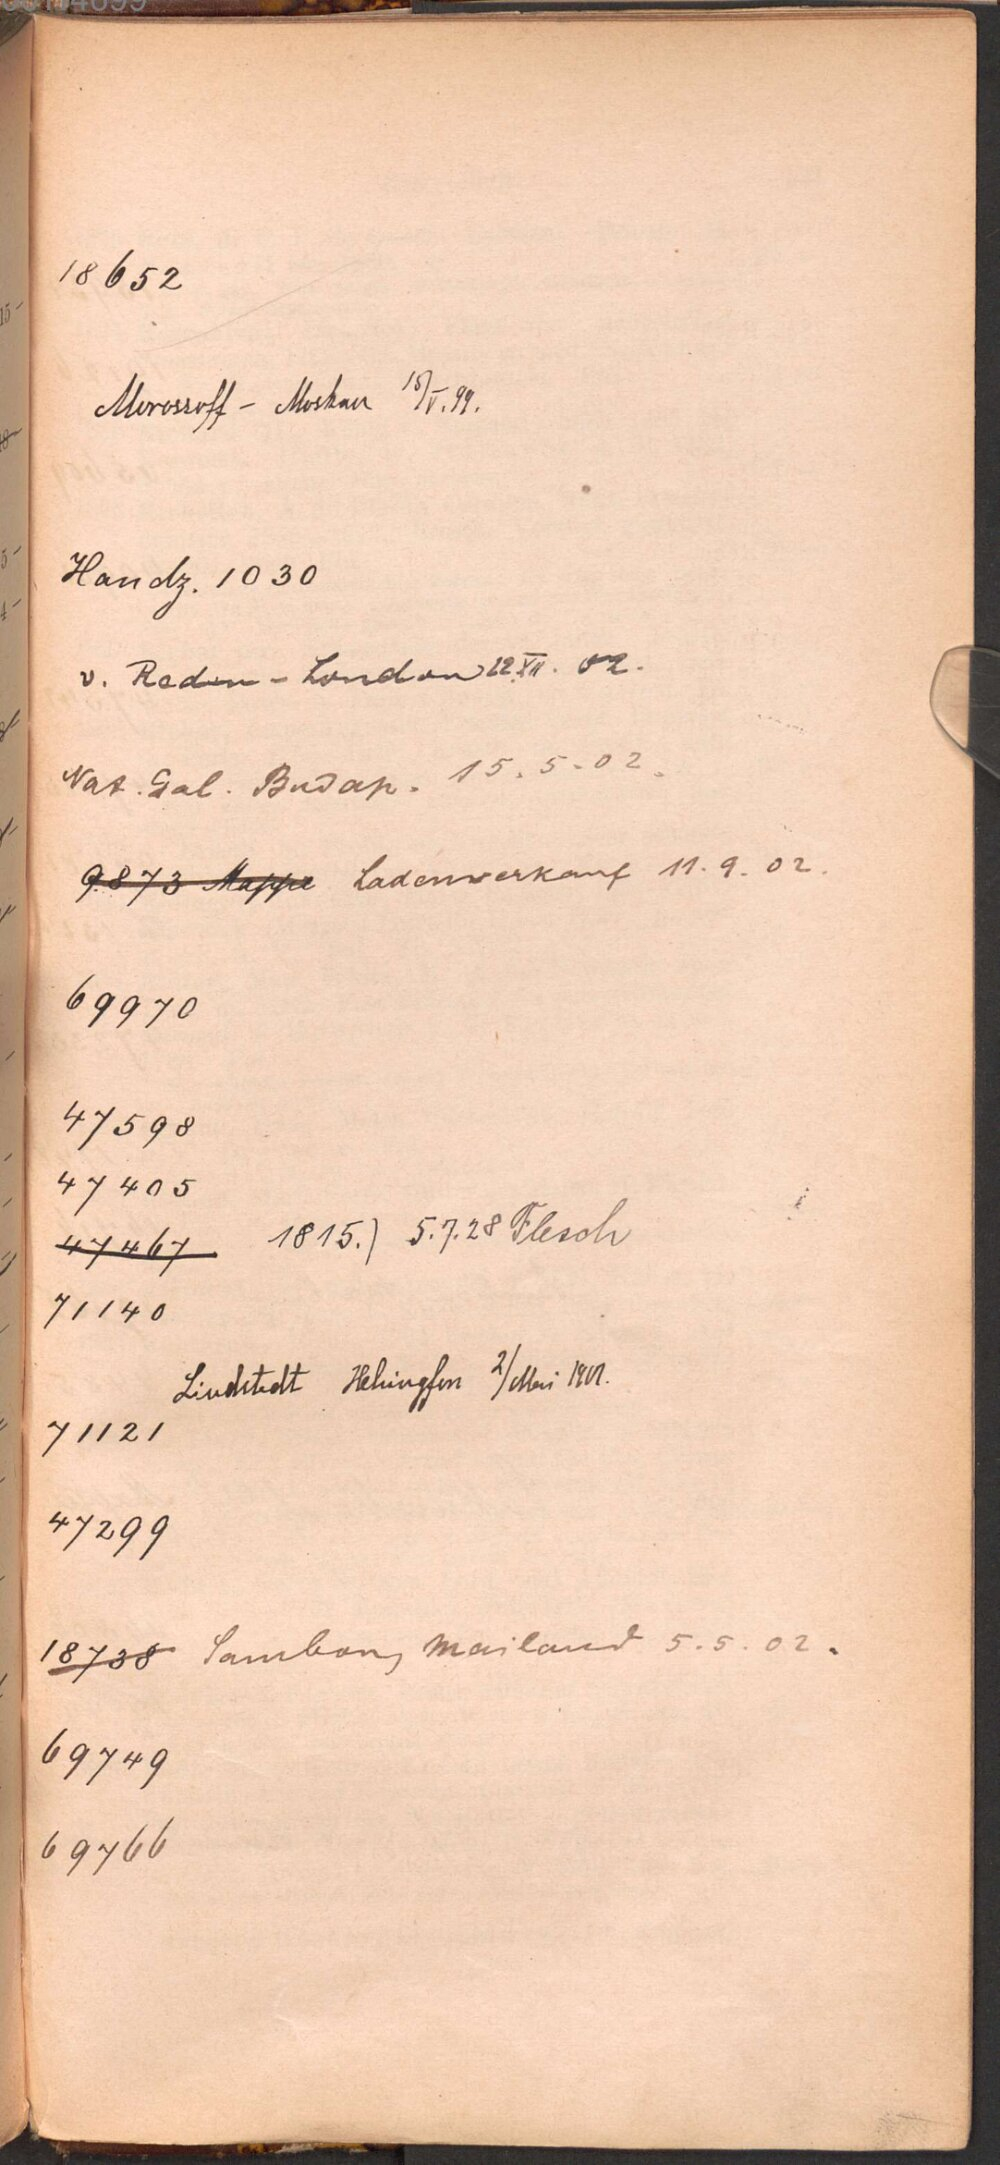 18652
Morossoff - Moskau 15/V. 99.
Handz. 1030
v. Reden - London 22.XII. 02.
Nat. Gal. Budap. 15.5.02.
9873 Mappe Ladenverkauf 11.9.02.
69970
47598
47405
47467 1815.) 5.7.28 Flesch
71140
Lindstedt Helsingfors 2/Mai 1901.
71121
47299
18738 Sambon, Mailand 5.5.02.
69749
69766